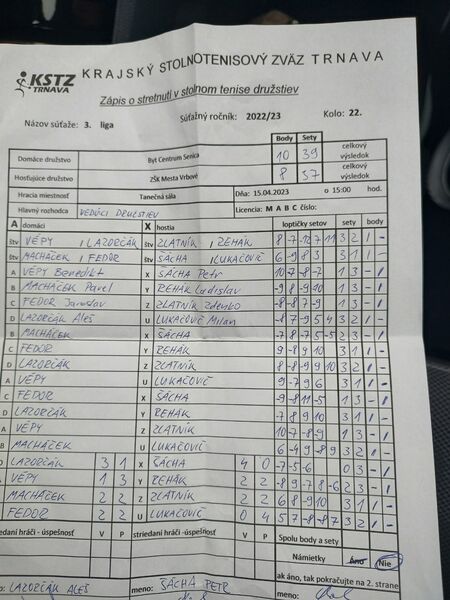 KSTZ
TRNAVA
KRAJSKÝ STOLNOTENISOVÝ ZVÄZ TRNAVA
Zápis o stretnutí v stolnom tenise družstiev
Názov súťaže: 3. liga Súťažný ročník: 2022/23 Kolo: 22.
Body Sety
Domáce družstvo Byt Centrum Senica 10 39 celkový výsledok
Hosťujúce družstvo ZŠK Mesta Vrbové 8 37 celkový výsledok
Hracia miestnosť Tanečná sála Dňa: 15.04.2023 o 15:00 hod.
Hlavný rozhodca VEDÚCI DRUŽSTIEV Licencia: M A B C číslo:
A domáci X hostia loptičky setov sety body
štv VÉPY , LAZORČÁK štv ZLATNÍK , ŘEHÁK 3 2 1 -
štv MACHÁČEK , FEDOR štv SÁCHA , LUKAČOVIČ 6 -9 8 3 3 1 1 -
A VÉPY Benedikt X SÁCHA Petr 10 -7 -8 -7 1 3 - 1
B MACHÁČEK Pavel Y ŘEHÁK Ladislav -9 8 -9 -10 1 3 - 1
C FEDOR Jaroslav Z ZLATNÍK Zdenko -8 -8 7 -9 1 3 - 1
D LAZORČÁK Aleš U LUKAČOVIČ Milan -8 7 -9 5 4 3 2 1 -
B MACHÁČEK X SÁCHA -7 8 -7 5 -5 2 3 - 1
C FEDOR Y ŘEHÁK 9 -8 9 10 3 1 1 -
D LAZORČÁK Z ZLATNÍK 3 2 1 -
A VÉPY U LUKAČOVIČ 9 -7 9 6 3 1 1 -
C FEDOR X SÁCHA -9 8 -11 -5 1 3 - 1
D LAZORČÁK Y ŘEHÁK 3 1 1 -
A VÉPY Z ZLATNÍK 10 -7 -8 -9 1 3 - 1
B MACHÁČEK U LUKAČOVIČ 6 -4 9 -8 9 3 2 1 -
D LAZORČÁK 3 1 X SÁCHA 4 0 -7 -5 -6 0 3 - 1
A VÉPY 1 3 Y ŘEHÁK 2 2 -8 9 -7 8 -6 2 3 - 1
MACHÁČEK 2 2 Z ZLATNÍK 2 2 3 1 1 -
FEDOR 2 2 U LUKAČOVIČ 0 4 5 7 -8 -8 7 3 2 1 -
striedaní hráči - úspešnosť V P striedaní hráči -úspešnosť V P Spolu body a sety
Námietky Áno Nie
ak áno, tak pokračujte na 2. strane
LAZORČÁK ALEŠ meno: SÁCHA PETR meno: